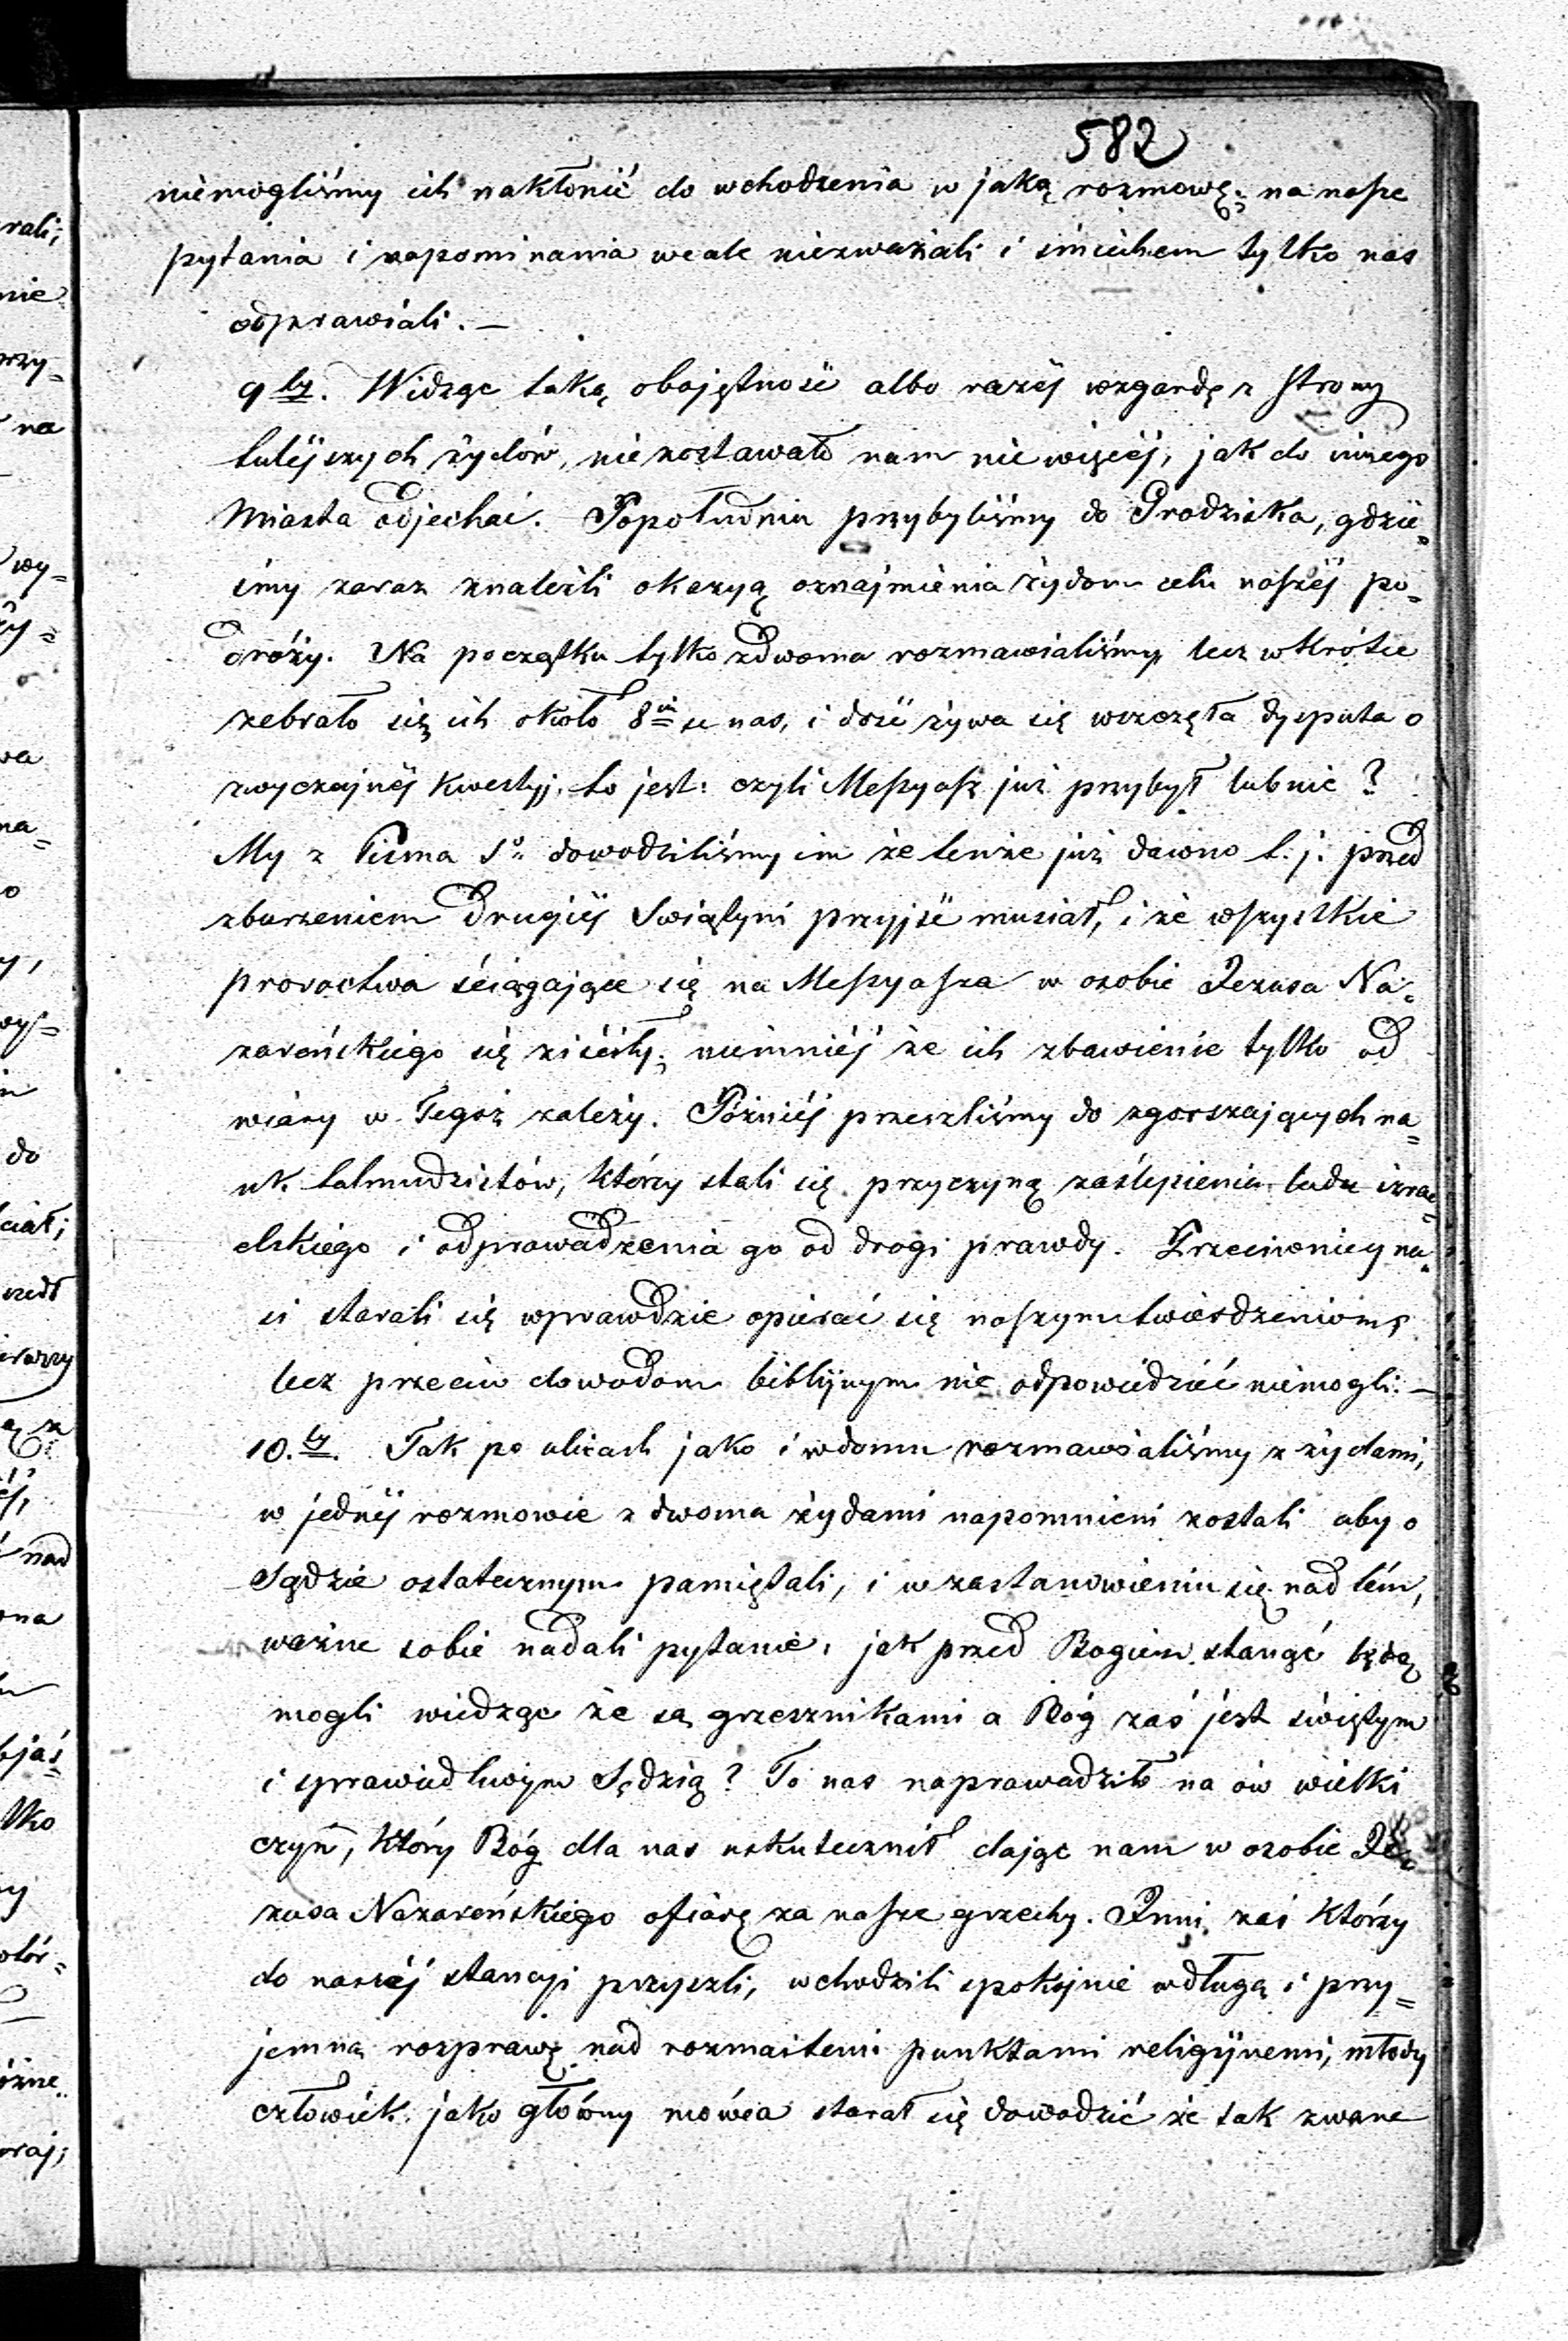 582
niemogliśmy ich nakłonić do wchodzenia w jaką rozmowę; na nasze
pytania i napominania wcale niezważali i śmiechem tylko nas
odprawiali. —
9ty. Widząc taką obojętność albo raczéj wzgardę z strony
tutéjszych żydów, nie zostawało nam nic więcéj, jak do innego
miasta odjechać. Popołudniu przybyliśmy do Grodziska, gdzie=
śmy zaraz znaleźli okazyą oznajmienia żydom celu naszéj po=
dróży. Na początku tylko zdwoma rozmawialiśmy lecz wkrótce
zebrało się ich około 8iu u nas, i dość żywa się wszczęła dysputa o
zwyczajnéj kwestyj, to jest: czyli Messyasz już przybył lub nie?
My z Pisma So. dowodziliśmy im że tenże już dawno t. j. przed
zburzeniem drugiéj Swiątyni przyjść musiał, i że wszystkie
proroctwa ściągające się na Messyasza w osobie Jezusa Na=
zareńskiego się ziściły; niemniéj że ich zbawienie tylko od
wiary w Tegoż zależy. Póżniéj przeszliśmy do zgorszających na=
uk talmudzistów, którzy stali się przyczyną zaślepienia ludu izrae=
elskiego i odprowadzenia go od drogi prawdy. Przeciwnicy na=
si starali się wprawdzie opierać się naszym twierdzeniom,
lecz przeciw dowodom biblijnym nic odpowiedzieć niemogli. —
10.ty. Tak po ulicach jako i w domu rozmawialiśmy z żydami,
w jednéj rozmowie z dwoma żydami napomnieni zostali aby o
Sądzie ostatecznym pamiętali, i w zastanowieniu się nad tém,
ważne sobie nadali pytanie, jak przed Bogiem stanąć będą
mogli wiedząc że są grzesznikami a Bóg zaś jest świętym
i sprawiedliwym Sędzią? To nas naprowadziło na ów wielki
czyn, który Bóg dla nas uskutecznił dając nam w osobie Je=
zusa Nazareńskiego ofiarę za nasze grzechy. Inni zaś którzy
do naszéj stancyi przyszli, wchodzili spokojnie w długą i przy=
jemną rozprawę nad rozmaitemi punktami religijnemi, młody
człowiek jako główny mówca starał się dowodzić że tak zwane